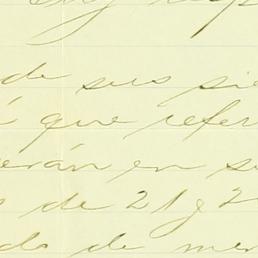 de sus sie
que refer
erán en se
de 21 y 2
do de men